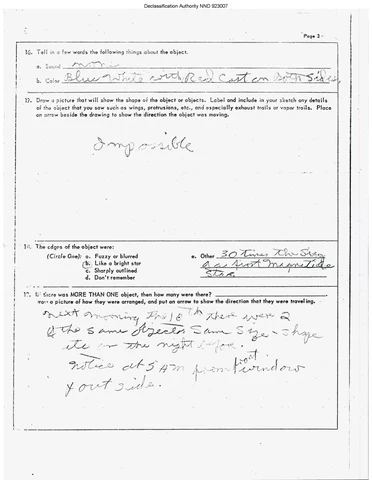 Declassification Authority NND 923007
Page 3
16. Tell in a few words the following things about the object.
a. Sound none
b. Color Blue White with Red Cast on Both Sides
13. Draw a picture that will show the shape of the object or objects. Label and include in your sketch any details
of the object that you saw such as wings, protrusions, etc., and especially exhaust trails or vapor trails. Place
an arrow beside the drawing to show the direction the object was moving.
Impossible
14. The edges of the object were:
(Circle One): a. Fuzzy or blurred
b. Like a bright star
c. Sharply outlined
d. Don't remember
e. Other 30 times the Size
of a first Magnitude
Star
15. If there was MORE THAN ONE object, then how many were there?
Draw a picture of how they were arranged, and put an arrow to show the direction that they were traveling.
next morning the 18th there were 2
of the same objects Same Size - Shape
etc as the night before.
notice at 5 AM from front window
& out side.